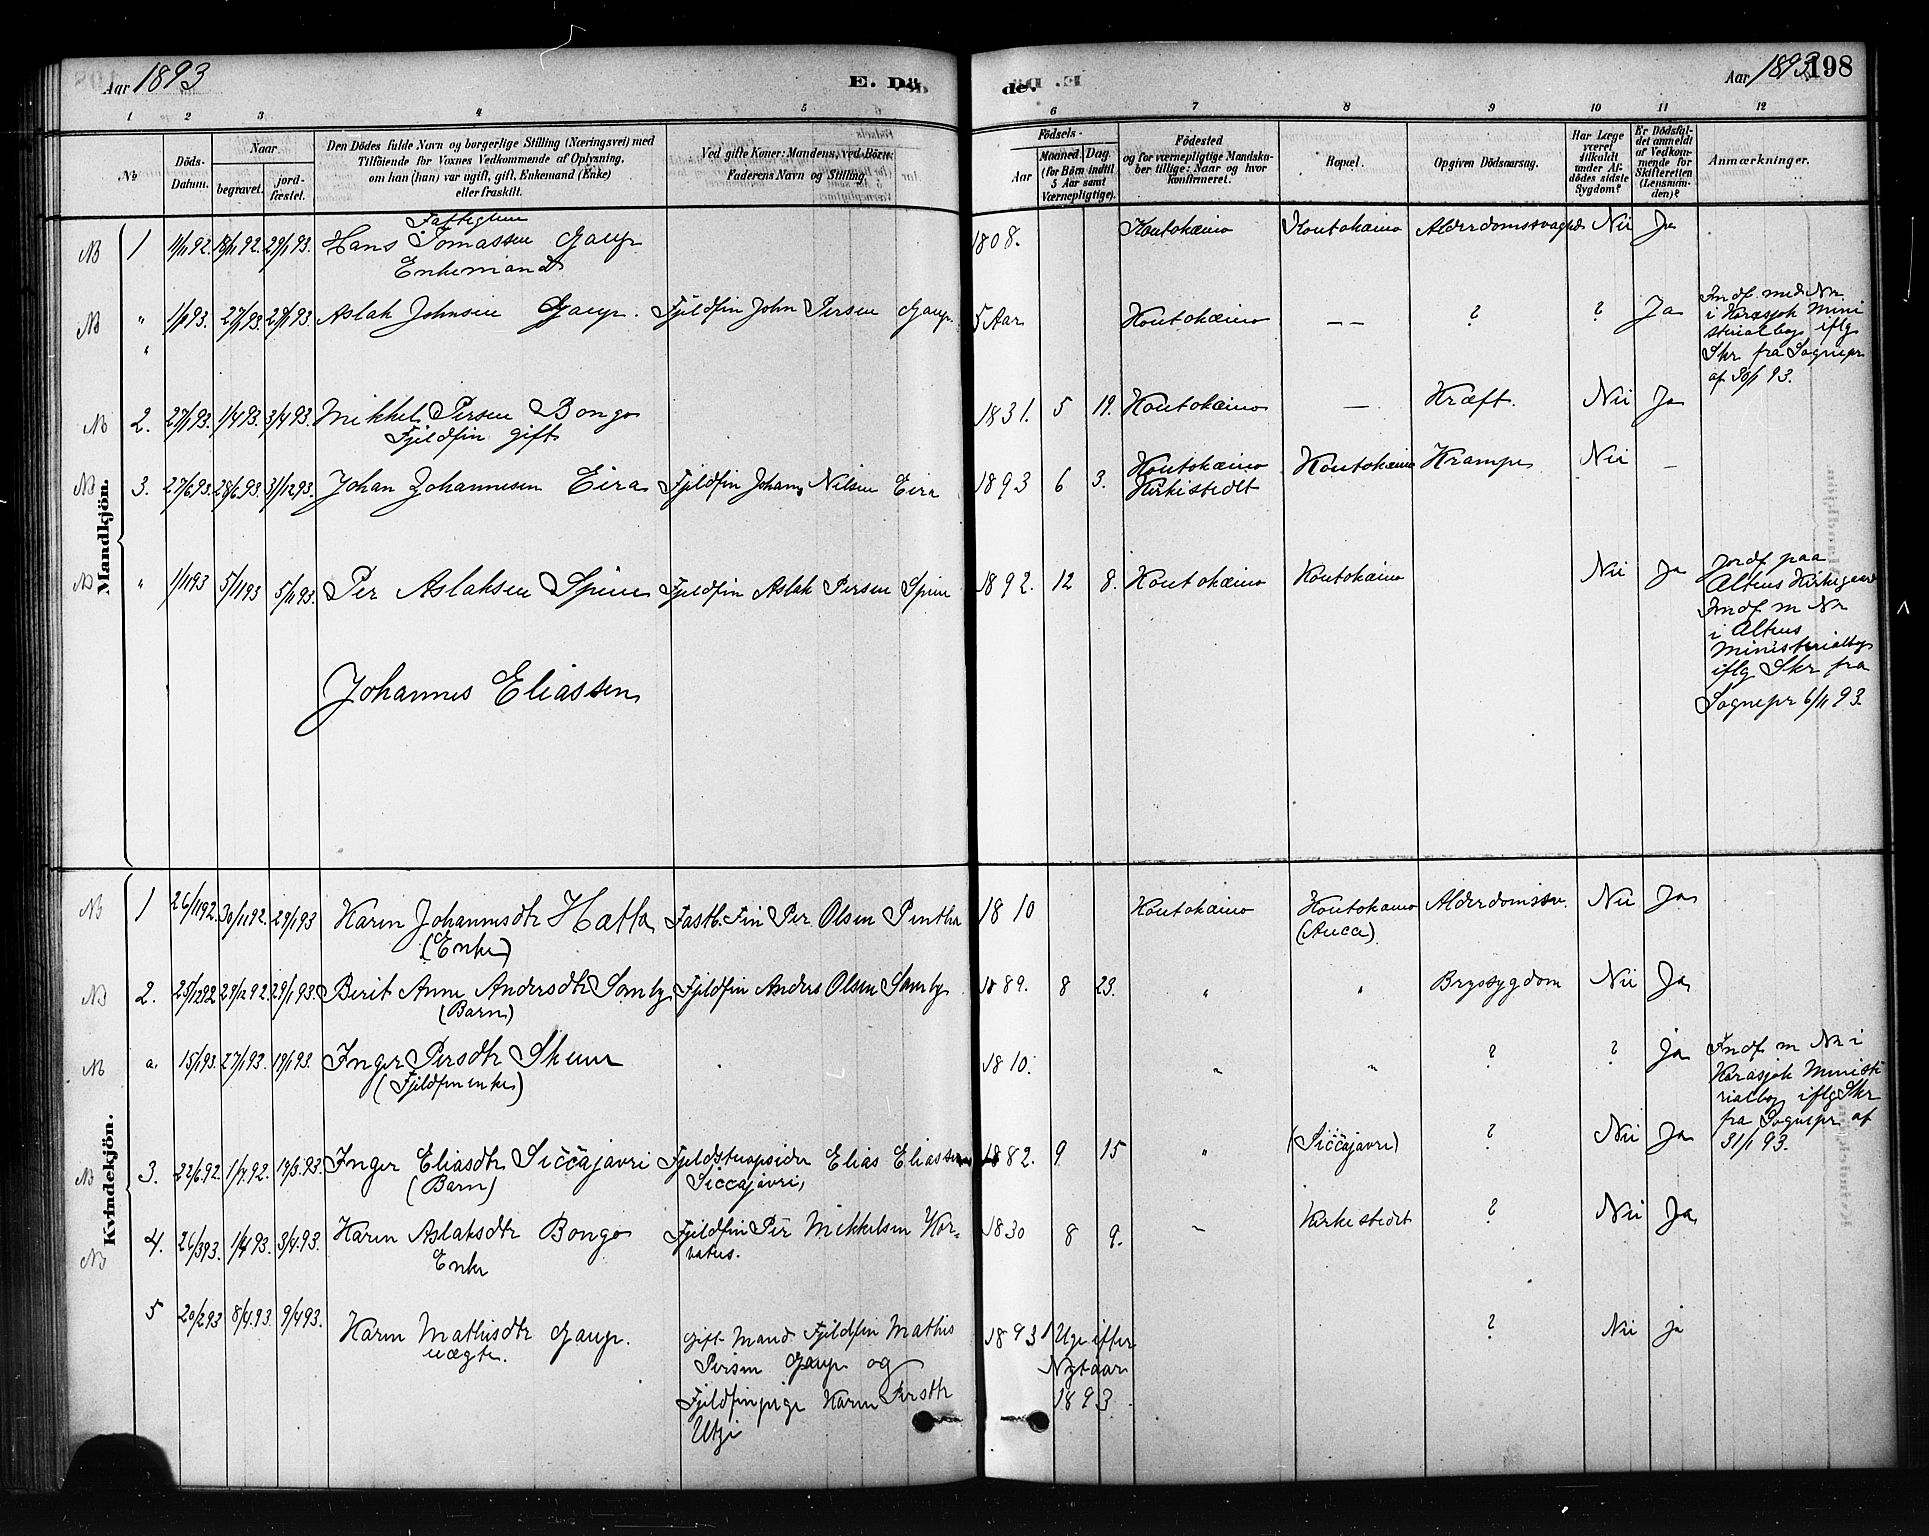 Aar 1893
E. Döde.
Aar 1893
198
1 2 3 4 5 6 7 8 9 10 11 12
No
Döds-Datum.
Naar
begravet.
jord-fæstet.
Den Dödes fulde Navn og borgerlige Stilling (Næringsvei) med
Tilföiende for Voxnes Vedkommende af Oplysning,
om han (hun) var ugift, gift, Enkemand (Enke)
eller fraskilt.
Ved gifte Koner: Mandens, ved Börn:
Faderens Navn og Stilling.
Födsels-
Aar
Maaned. Dag.
(for Börn indtil
5 Aar samt
Værnepligtige).
Födested
og for værnepligtige Mandska-
ber tillige: Naar og hvor
konfirmeret.
Bopæl.
Opgiven Dödsaarsag.
Har Læge
været
tilkaldt
under Af-
dödes sidste
Sygdom?
Er Dödsfal-
det anmeldt
af Vedkom-
mende for
Skifteretten
(Lensman-
den)?
Anmærkninger.
Mandkjön.
Fattiglem
1 11/11 92. 29/1 93. Hans Tomassen Gaup 1808. Koutokæino Koutokæino Alderdomssvaghed Nei Ja
Enkemand
" 27/1 93. 29/1 93. Aslak Johnsen Gaup. Fjeldfin John Persen Gaup. 5 Aar Koutokæino — — ? ? Ja
Indf. med No
i Karasjok Mini
sterialbog iflg
Skr fra Sognepr
af 30/1 93.
2. 1/4 93. 3/4 93. Mikkel Persen Bongo 1831. 5 19. Koutokæino — Kræft. Nei Ja
Fjeldfin gift
3. 27/6 93. 28/6 93. 31/12 93. Johan Johannesen Eira Fjeldfin Johans Nilsen Eira 1893 6 3. Koutokæino Koutokæino Krampe Nei —
Kirkestedet
" 1/11 93 5/11 93 5/11 93. Per Aslaksen Spein Fjeldfin Aslak Persen Spein 1892. 12 8. Koutokæino Koutokæino Nei Ja
Jordf paa
Altens Kirkegaard
Indf m No
i Altens
Ministerialbog
iflg Skr fra
Sognepr 6/11 93.
Johannes Eliassen
Kvindekjön.
1 26/11 92. 30/11 92. 29/1 93 Karen Johannesdtr Hætta Fastb. Fin Per Olsen Pentha 1810 Koutokæino Koutokæino Alderdomssv. Nei Ja
(Enke) (Auca).
2. 29/12 92. 29/1 93. Berit Anne Andersdtr Somby Fjeldfin Anders Olsen Somby 1889. 8 23. " " Brystsygdom Nei Ja
(Barn)
a. 15/1 93. 27/1 93. 19/1 93. Inger Persdtr Skum 1810. " " ? ? Ja
(Fjeldfinenke)
Indf m No i
Karasjok Ministe
rialbog iflg Skr
fra Sognepr af
31/1 93.
3. 22/6 92. 1/7 92. 19/3 93. Inger Eliasdtr Siččajavri Fjeldstueopsider Elias Eliassen 1882. 9 15 " (Siččajavri) ? Nei Ja
(Barn) Siččajavri,
4. 26/3 93. 1/4 93. 3/4 93. Karen Aslaksdtr Bongo Fjeldfin Per Mikkelsen Kor-
vatus. 1830 8 9. " Kirkestedet ? Nei Ja
Enke
5 20/2 93 8/4 93. 9/4 93. Karen Mathisdtr Gaup. gift Mand Fjeldfin Mathis 1893 1 Uge efter ? Nei ja
uægte. Persen Gaup og Nytaar
Fjeldfinpige Karen Persdtr 1893.
Utsi